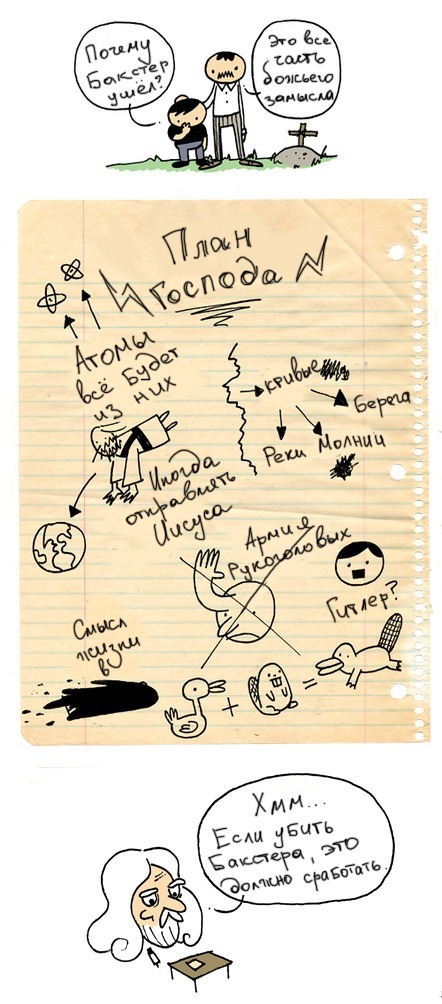 Почему
Бакстер
ушёл?
Это все
часть
божьего
замысла
План
Господа
Атомы
всё будет
из них
кривые
Берега
Реки
Молнии
Иногда
отправлять
Иисуса
Армия
Рукоголовых
Гитлер?
Смысл
жизни
в
+
=
Хмм...
Если убить
Бакстера, это
должно сработать.